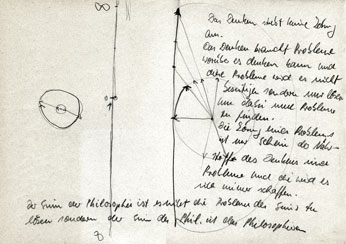 ∞
Das Denken strebt keine Lösung
an.
Das Denken braucht Probleme
worüber es denken kann und
diese Probleme wird es nicht
beseitigen sondern nur lösen
um dabei neue Probleme
zu finden.
Die Lösung eines Problems
ist nur Schein des
des Denkens
Probleme und die wird es
sich immer schaffen.
Der Sinn der Philosophie ist es nicht die Probleme des Sinns zu
lösen sondern der Sinn der Phil. ist das Philosophieren
8